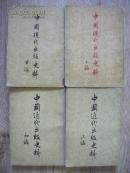 中國現代出版史料
甲編
中國現代出版史料
編
中國近代出版史料
初編
中國近代出版史料
二編